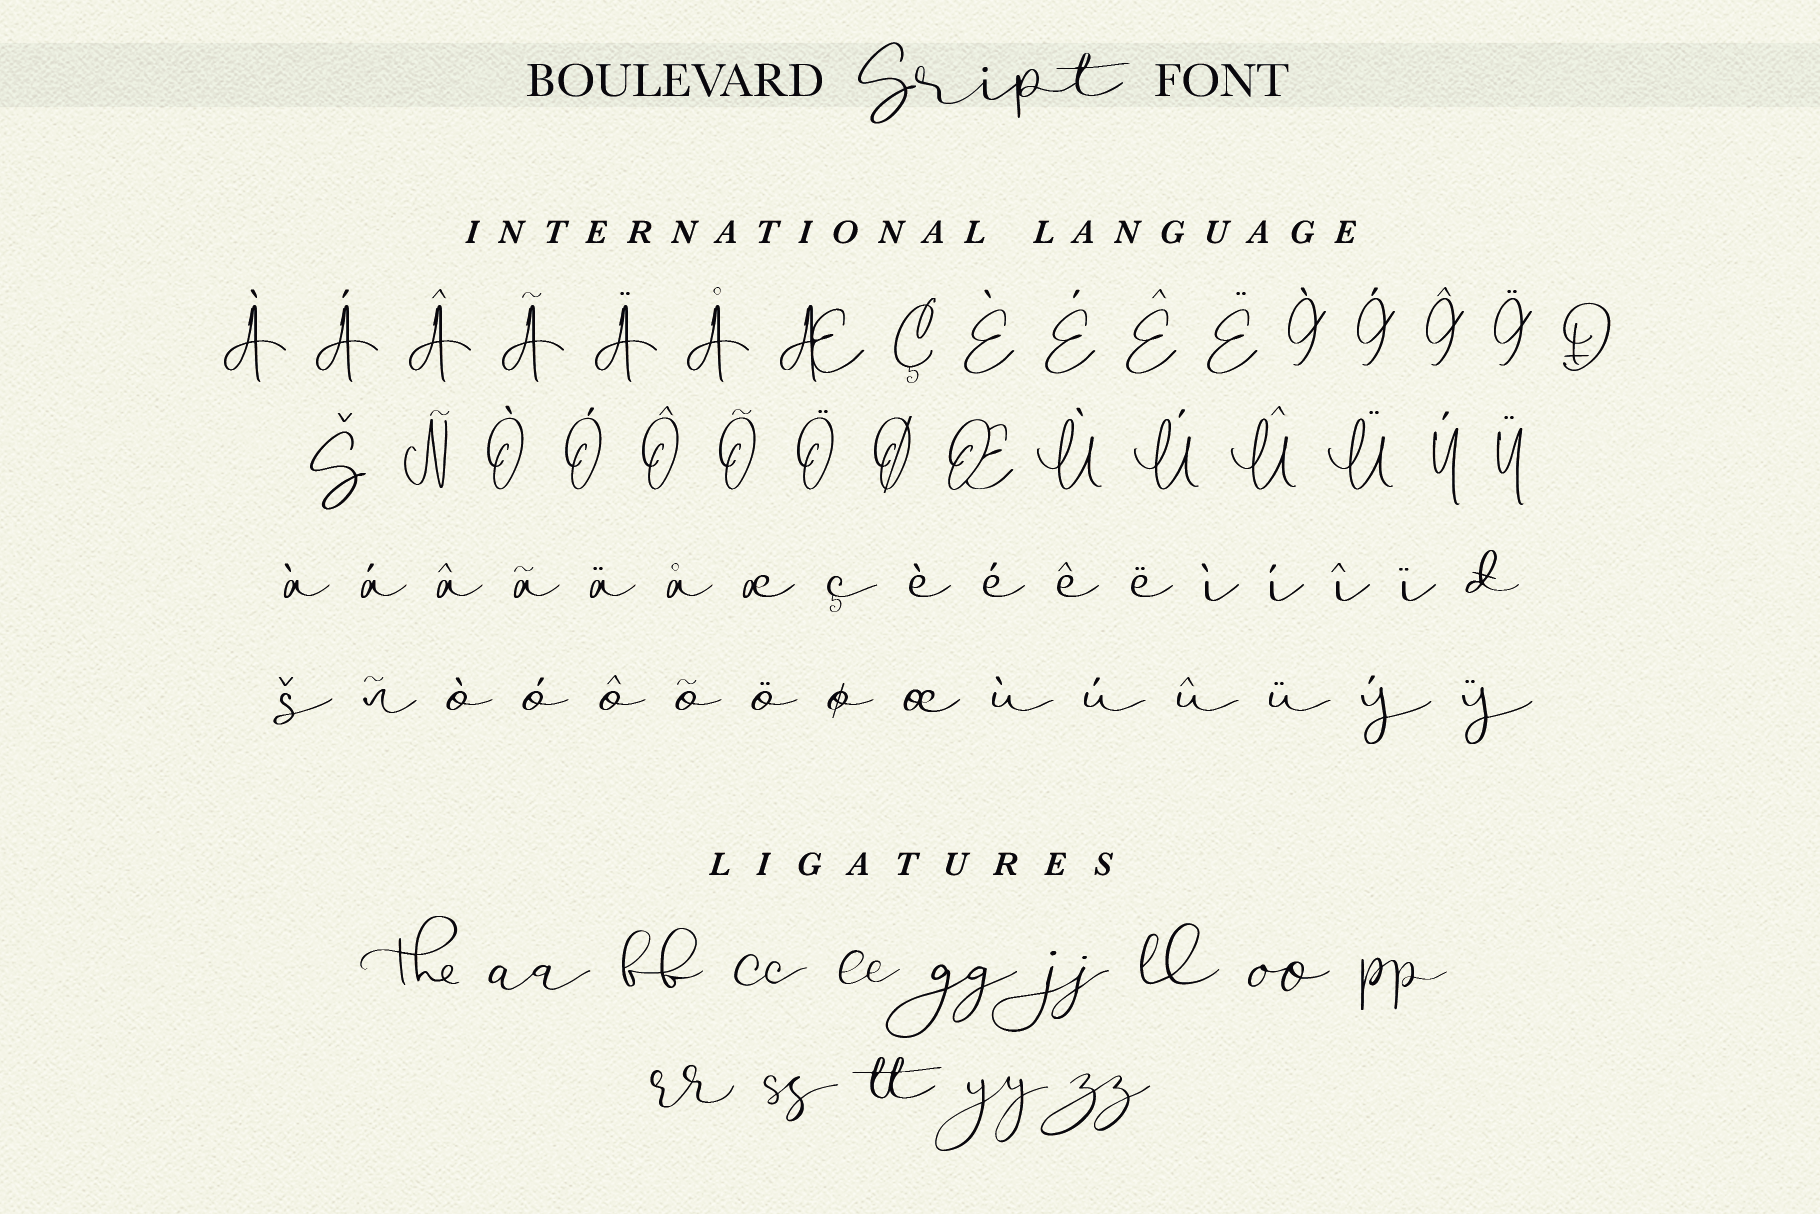 BOULEVARD Sript FONT
INTERNATIONAL LANGUAGE
À Á Â Ã Ä Å Æ Ç È É Ê Ë Ì Í Î Ï Ð
Š Ñ Ò Ó Ô Õ Ö Ø Œ Ù Ú Û Ü Ý Ÿ
à á â ã ä å æ ç è é ê ë ì í î ï đ
š ñ ò ó ô õ ö ø œ ù ú û ü ý ÿ
LIGATURES
the aa bb cc ee gg jj ll oo pp
rr ss tt yy zz